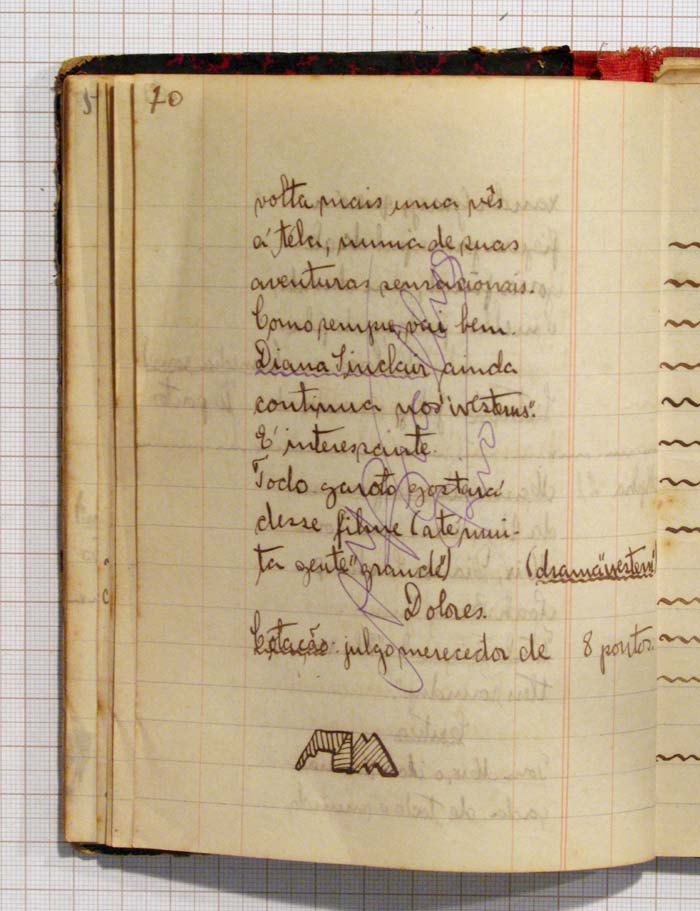 70
volta mais uma vês
á téla, numa de suas
aventuras sensacionais.
Como sempre, vai bem.
Diana Sinclair ainda
continua nos "westerns".
E' interessante.
Todo garoto gostará
desse filme (até mui-
ta gente "grande") (drama "western")
Dolores.
Cotação: julgo, merecedor de 8 pontos.